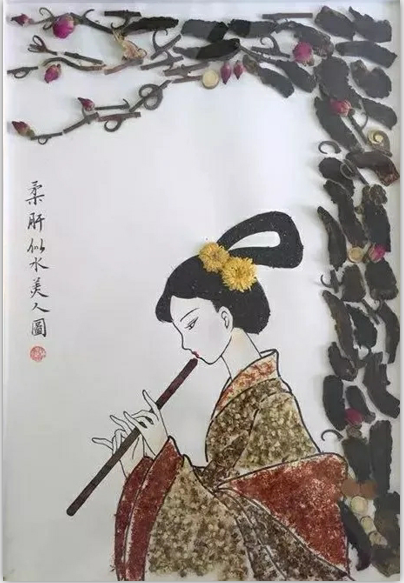 柔肝似水美人圖